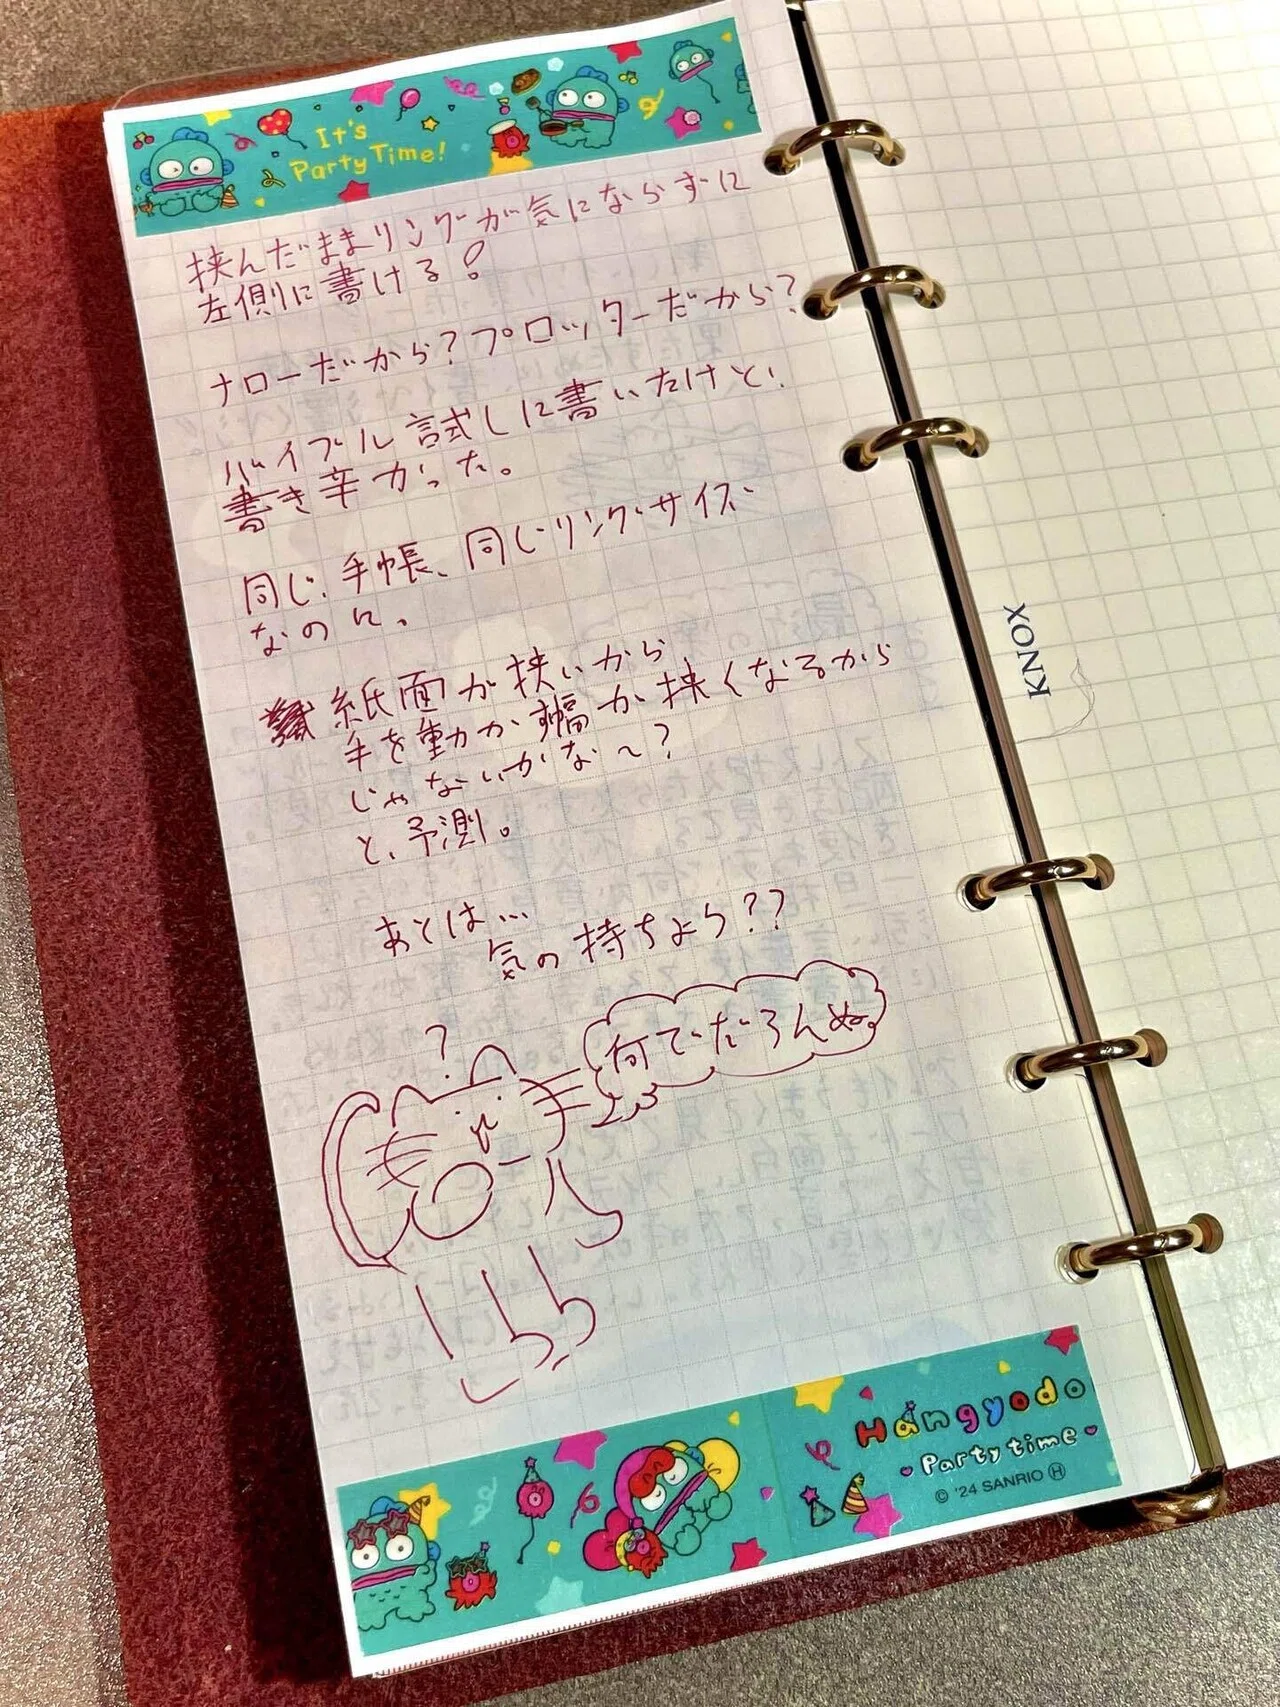 It's
Party Time!
挟んだままリングが気にならずに
左側に書ける!
ナローだから?プロッターだから?
バイブル試しに書いたけど
書き辛かった。
同じ手帳、同じリングサイズ
なのに。
紙面が狭いから
手を動かす幅が狭くなるから
じゃないかな〜?
と、予測。
あとは...
気の持ちよう??
?
何でだろんぬ
KNOX
Hangyodo
Party time
© '24 SANRIO Ⓗ